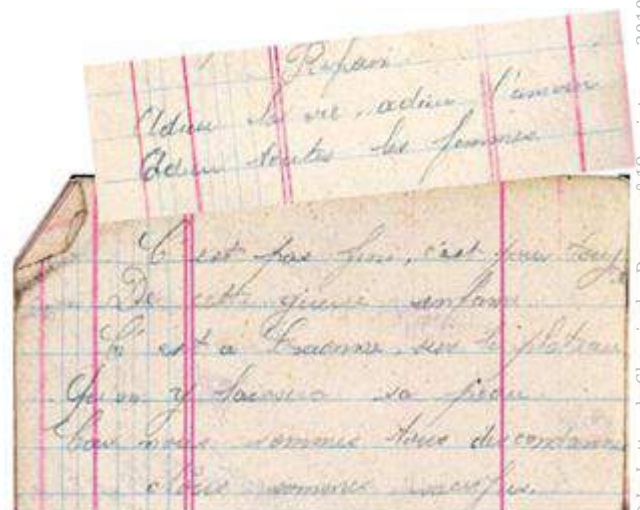 Refrain
Adieu la vie, adieu l'amour
Adieu toutes les femmes
C'est pas fini, c'est pour touj
De cette guerre infame
C'est à Craonne, sur le plateau
Qu'on y laissera sa peau
Car nous sommes tous des condamnés
Nous sommes sacrifiés.